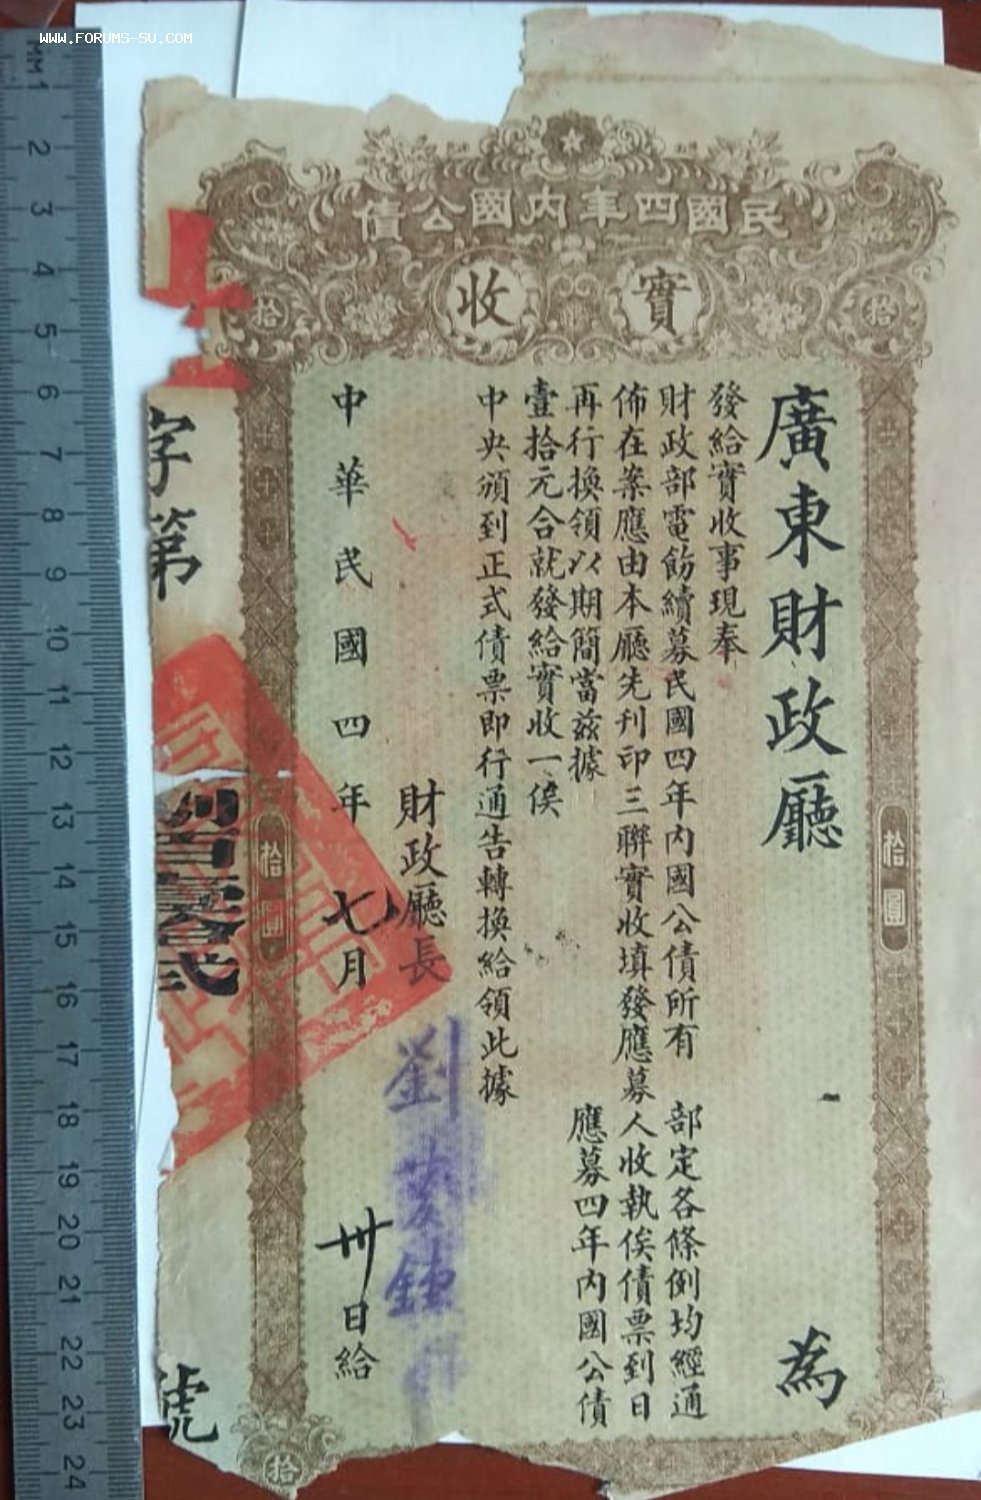 WWW.FORUMS-SU.COM
民國四年內國公債
實收
拾
拾
廣東財政廳
為
發給實收事現奉
財政部電飭續募民國四年內國公債所有
部定各條例均經通
佈在案應由本廳先刊印三聯實收填發應募人收執俟債票到日
再行換領以期簡當茲據
應募四年內國公債
壹拾元合就發給實收一俟
中央頒到正式債票即行通告轉換給領此據
財政廳長
劉
中華民國四年七月卅日給
字第
號
拾圓
拾圓
拾
MM 1 2 3 4 5 6 7 8 9 10 11 12 13 14 15 16 17 18 19 20 21 22 23 24